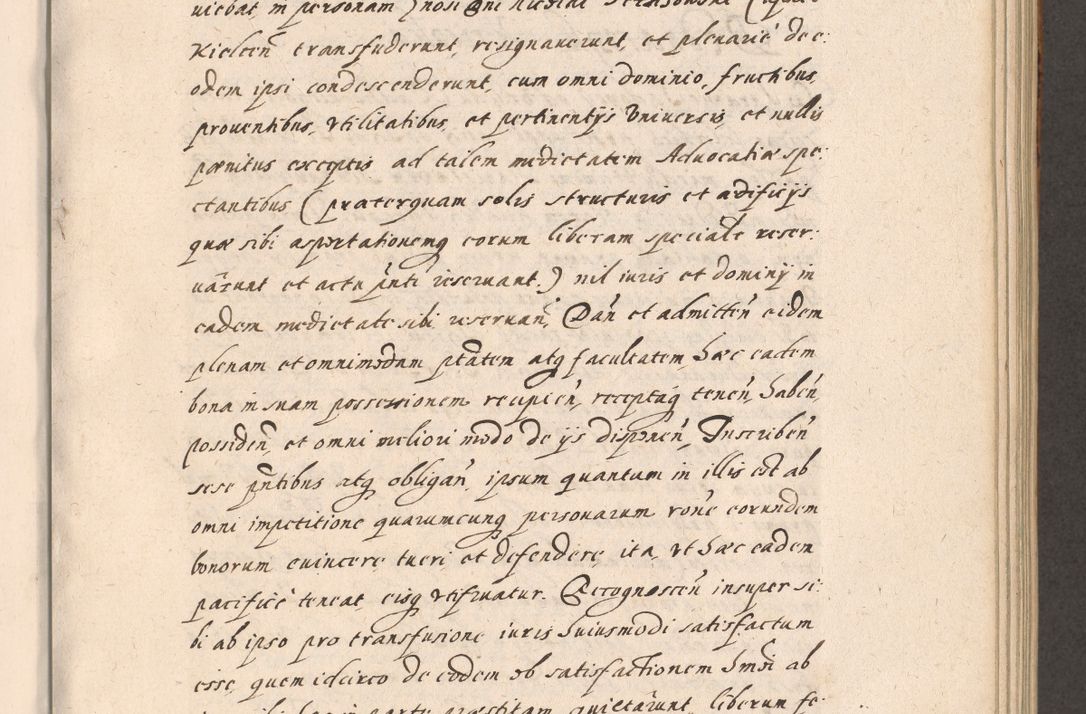 uiebat, in personam Gnosi Dni Nicolai
Kielcen̄ transfuderunt, resignauerunt, et plenariè de e:
odem ipsi condescenderunt, cum omni dominio, fructibus,
prouentibus, vtilitatibus, et pertinentijs Vniuersis, et nullis
pœnitus exceptis ad talem medietatem Aduocatiæ spe:
ctantibus (præterquam solis structuris et ædificijs
quæ sibi asportationemq eorum liberam specialr̄ reser:
uārunt et actu pn̄ti reseruant.) nil iuris et dominij in
eadem medietate sibi reseruan̄, Dan̄ et admitten̄ eidem
plenam et omnimodam ptātem atq facultatem, hæc eadem
bona in suam possessionem recipien̄, receptaq tenen̄, haben̄,
possiden̄, et omni meliori modo de ijs disponen̄, Inscriben̄
sese pn̄tibus atq obligan̄, ipsum quantum in illis est ab
omni impetitione quarumcunq personarum ron̄e eorundem
bonorum euincere, tueri et defendere, ita, vt hæc eadem
pacificè teneat, eisq vtifruatur. Recognoscen̄ insuper si:
bi ab ipso pro transfusione iuris huiusmodi satisfactum
esse, quem idcirco de eodem ob satisfactionem hm̄oi ab
in parte præstitam, quietārunt, liberum fe: